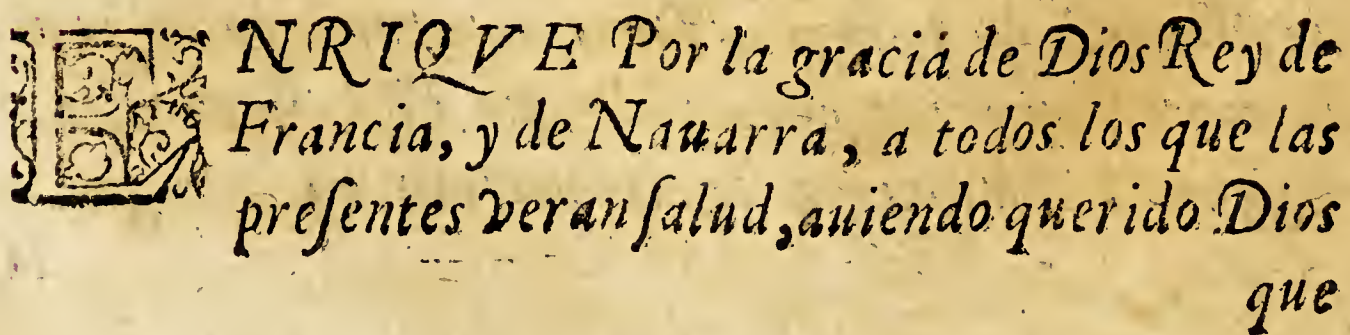 ENRIQVE Por la gracia de Dios Rey de
Francia, y de Nauarra, a todos los que las
preſentes veran ſalud, auiendo querido Dios
que